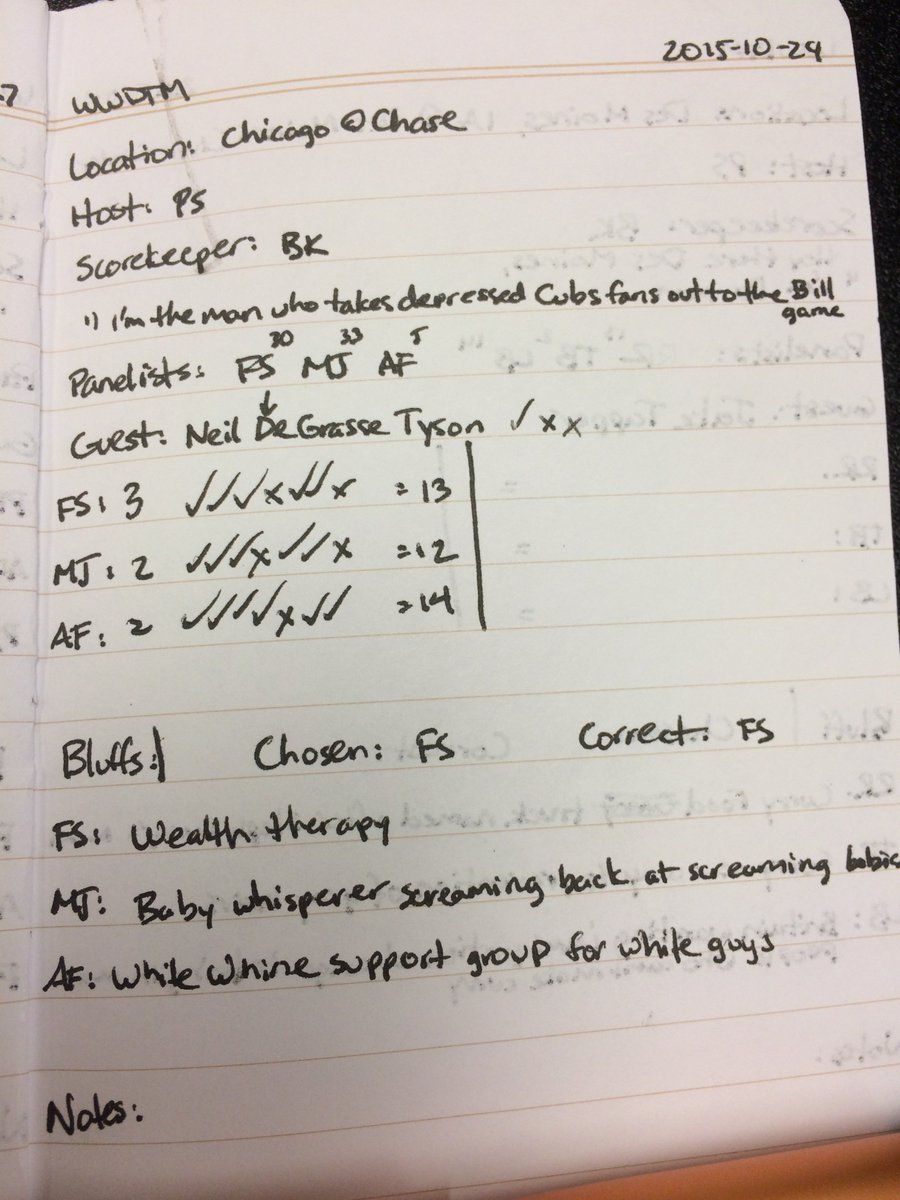 2015-10-24
WWDTM
Location: Chicago @ Chase
Host: PS
Scorekeeper: BK
") I'm the man who takes depressed Cubs fans out to the Bill
game
30 33 5
Panelists: FS MJ AF
Guest: Neil DeGrasse Tyson ✓xx
FS: 3 ✓✓✓x✓✓x = 13
MJ: 2 ✓✓✓x✓✓x = 12
AF: 2 ✓✓✓✓x✓✓ = 14
Bluffs: Chosen: FS Correct: FS
FS: Wealth therapy
MJ: Baby whisperer screaming back at screaming babie
AF: White Whine support group for white guys
Notes: